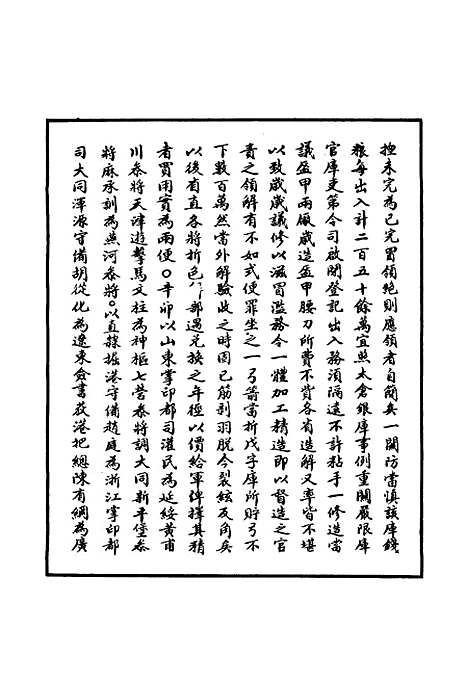 捏未完為已完冒領絕則應領者自簡矣一關防當慎該庫錢
糧每出入計二百五十餘萬宜照太倉銀庫事例重關嚴限庫
官庫吏第令司啟閉登記出入務須隔遠不許粘手一修造當
議盔甲兩廠歲造盔甲腰刀所費不貲各省造解又率皆不堪
以致歲歲議修以滋冒濫務令一體加工精造即以督造之官
責之領解有不如式便罪坐之一弓箭當折戊字庫所貯弓不
下數百萬然當外解驗收之時固已筋剝羽脫今裂絃反角矣
以後有直各將折色部遇兌換之年徑以價給軍俾擇其精
者買用實為兩便○辛卯以山東掌印都司濯民為延綏黃甫
川叅將天津遊擊馬文柱為神樞七營叅將調大同新平堡叅
將麻承訓為燕河叅將○以直隸掘港守備趙庭為浙江掌印都
司大同渾源守備胡從化為遼東僉書荻港把總陳有綱為廣